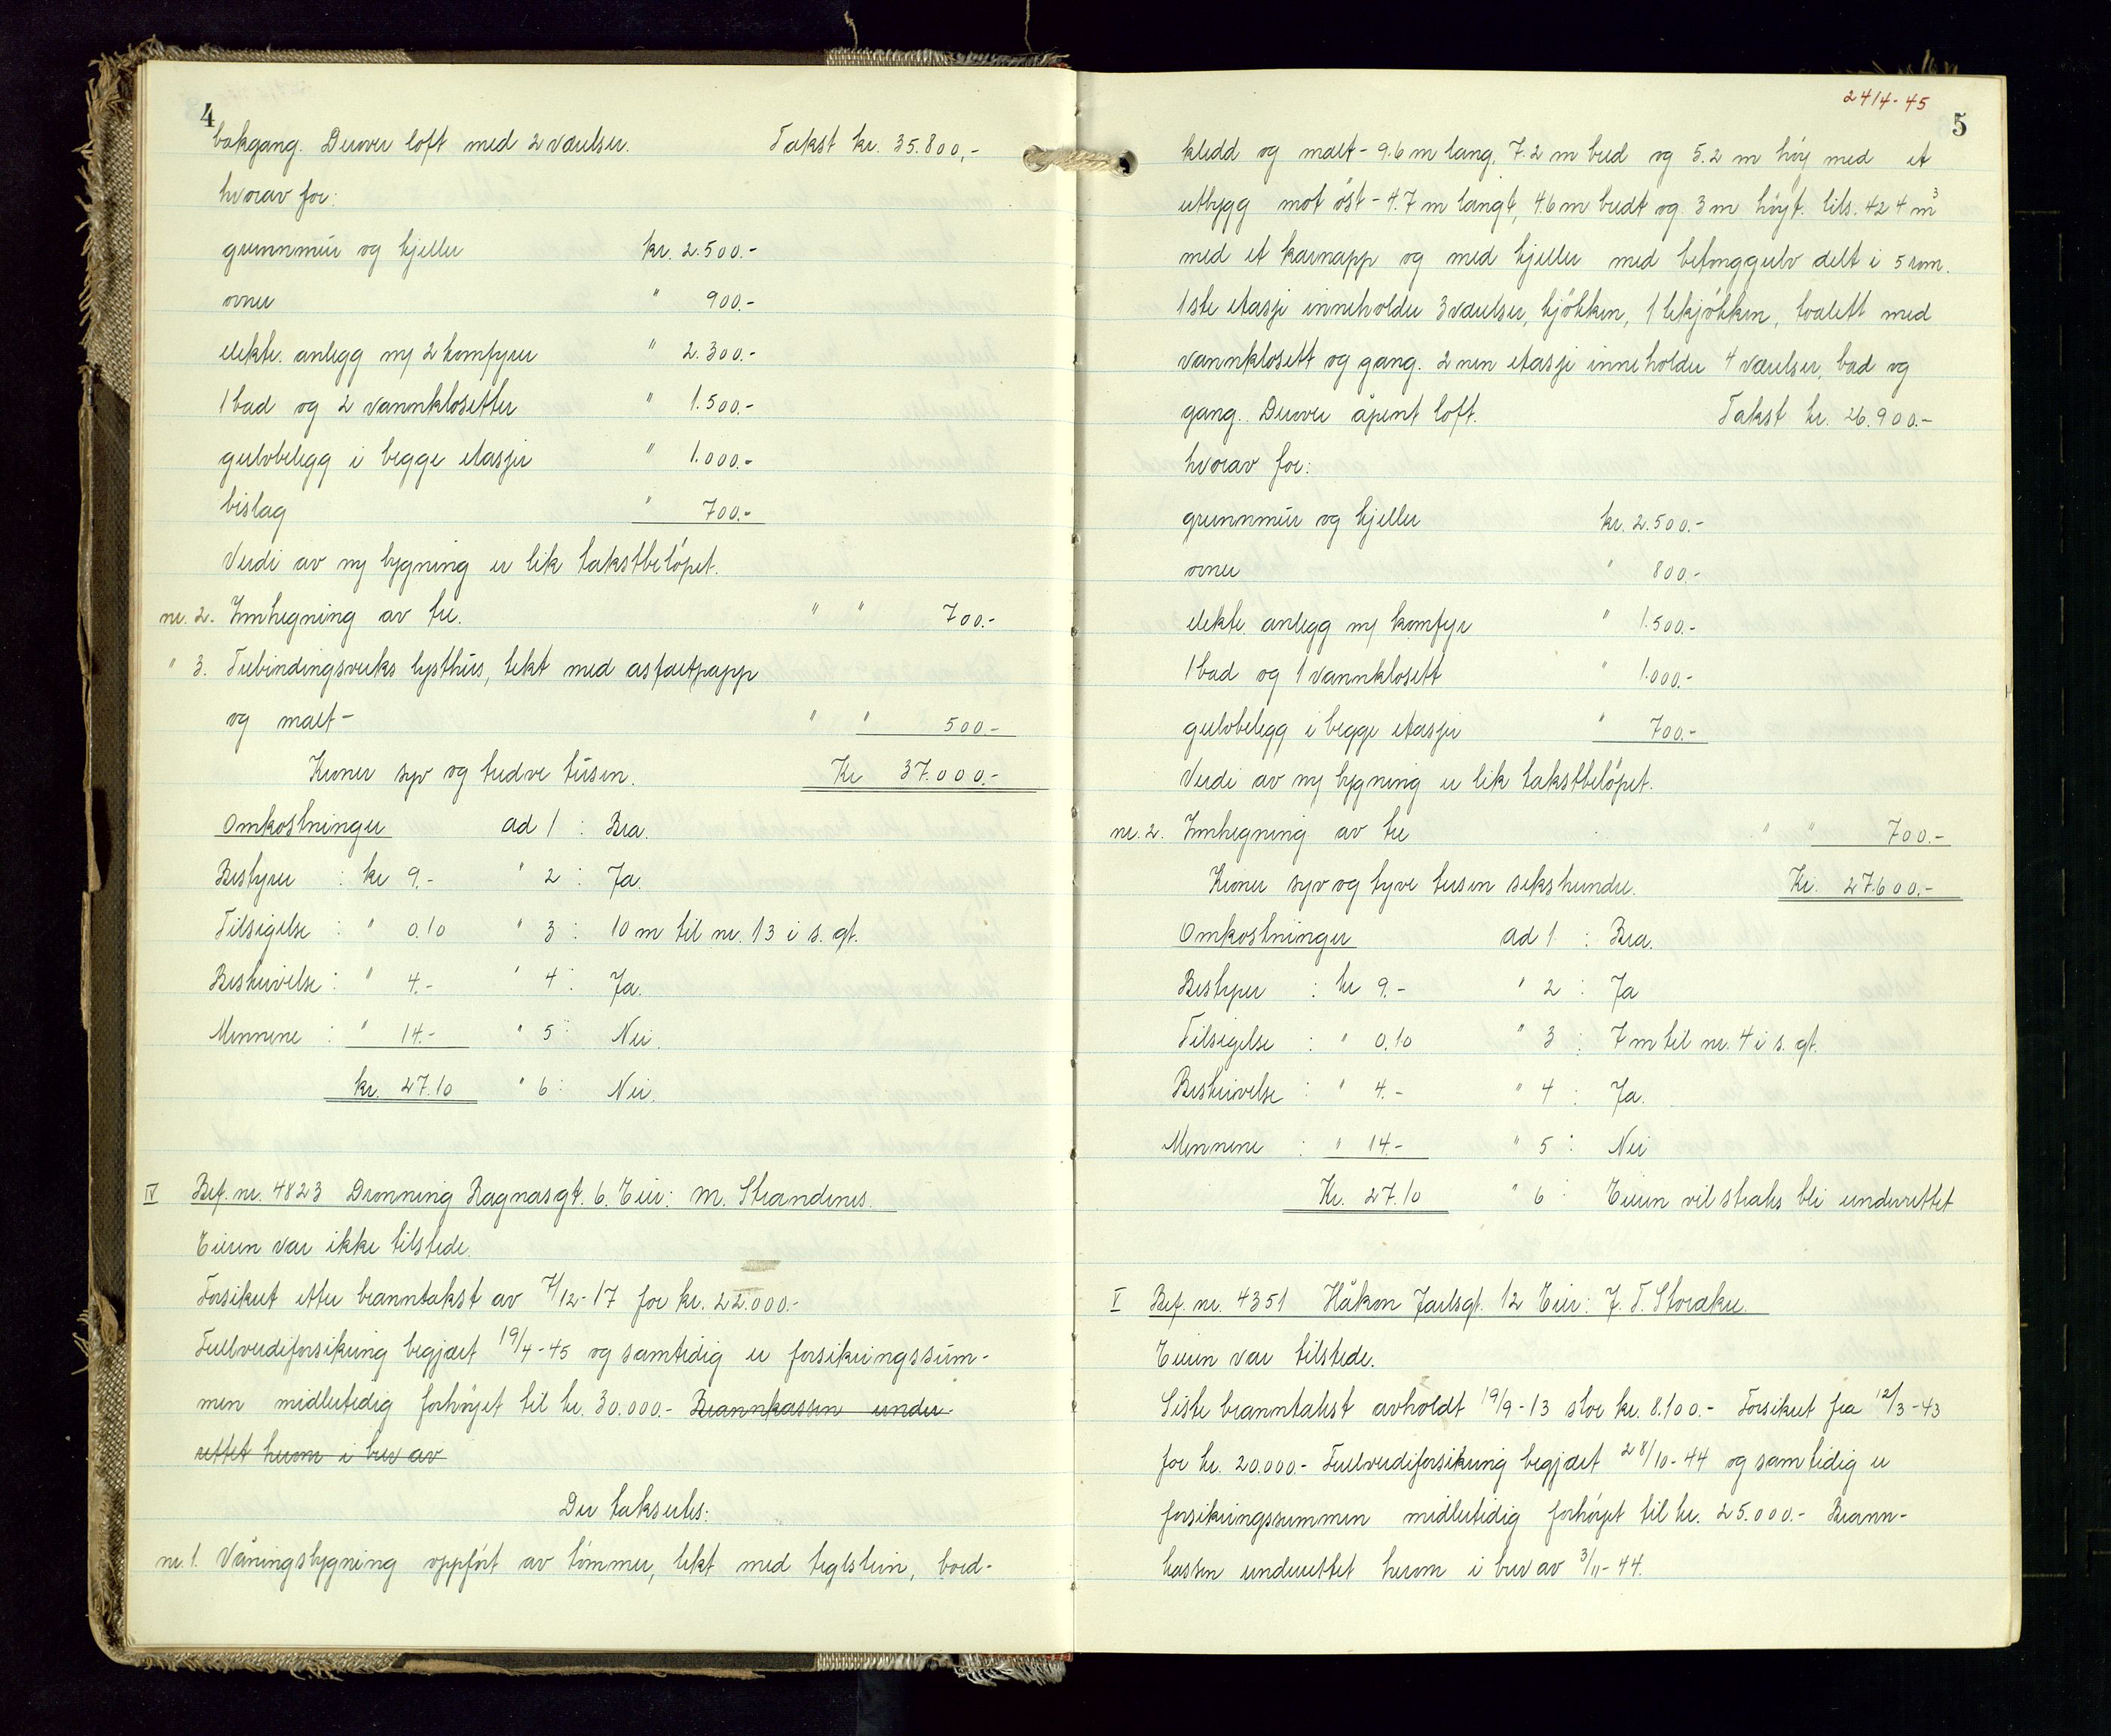 4
bakgang. Derover loft med 2 værelser. Takst kr. 35.800,-
hvorav for:
grunnmur og kjeller kr. 2.500.-
ovner " 900.-
elektr. anlegg m/ 2 komfyrer " 2.300.-
1 bad og 2 vannklosetter " 1.500.-
gulvbelegg i begge etasjer " 1.000.-
bislag " 700.-
Verdi av ny bygning er lik takstbeløpet.
nr. 2. Innhegning av tre. " " 700.-
" 3. Trebindingsverks lysthus, tekt med asfaltpapp
og malt- " " 500.-
Kroner syv og tredve tusen. Kr 37.000.-
Omkostninger ad 1 : Bra.
Bestyrer : kr 9.- " 2 : Ja.
Tilsigelse : " 0.10 " 3 : 10 m til nr. 13 i s. gt.
Beskrivelse : " 4.- " 4 : Ja.
Mennene : " 14.- " 5 : Nei.
kr. 27.10 " 6 : Nei.
IV Bef. nr. 4823 Dronning Ragnasgt. 6. Eier: M. Strandenes.
Eieren var ikke tilstede.
Forsikret etter branntakst av 7/12-17 for kr. 22.000.-
Fullverdiforsikring begjært 19/4-45 og samtidig er forsikringssum-
men midlertidig forhøyet til kr. 30.000.- Brannkassen under-
rettet herom i brev av
Der taksertes:
nr. 1. Våningsbygning oppført av tømmer, tekt med teglstein, bord-
24/4-45
5
kledd og malt - 9.6 m lang, 7.2 m bred og 5.2 m høy med et
utbygg mot øst - 4.7 m langt, 4.6 m bredt og 3 m høyt. tils. 424 m³
med et karnapp og med kjeller med betonggulv delt i 5 rom.
1ste etasje inneholder 3 værelser, kjøkken, 1 tekjøkken, toalett med
vannklosett og gang. 2nen etasje inneholder 4 værelser, bad og
gang. Derover åpent loft. Takst kr. 26.900.-
hvorav for:
grunnmur og kjeller kr. 2.500.-
ovner " 800.-
elektr. anlegg m/ komfyr " 1.500.-
1 bad og 1 vannklosett " 1.000.-
gulvbelegg i begge etasjer " 700.-
Verdi av ny bygning er lik takstbeløpet.
nr. 2. Innhegning av tre " " 700.-
Kroner syv og tyve tusen sekshundre. Kr. 27.600.-
Omkostninger ad 1 : Bra.
Bestyrer : kr 9.- " 2 : Ja
Tilsigelse : " 0.10 " 3 : 7 m til nr. 4 i s. gt.
Beskrivelse : " 4.- " 4 : Ja.
Mennene : " 14.- " 5 : Nei
Kr. 27.10 " 6 : Eieren vil straks bli underrettet
V Bef. nr. 4351 Håkon Jarlsgt. 12 Eier: J. T. Storaker.
Eieren var tilstede.
Siste branntakst avholdt 19/9-13 stor kr. 8.100.- Forsikret fra 12/3-43
for kr. 20.000.- Fullverdiforsikring begjært 28/10-44 og samtidig er
forsikringssummen midlertidig forhøyet til kr. 25.000.- Brann-
kassen underrettet herom i brev av 3/11-44.